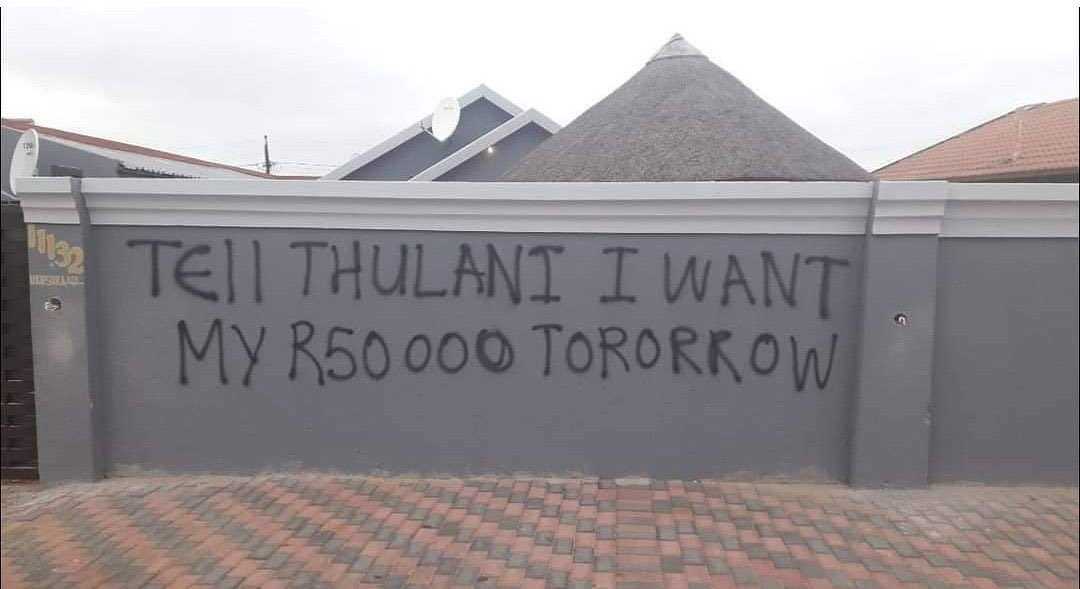 11132
TEll THULANI I WANT
MY R50 000 TORORROW